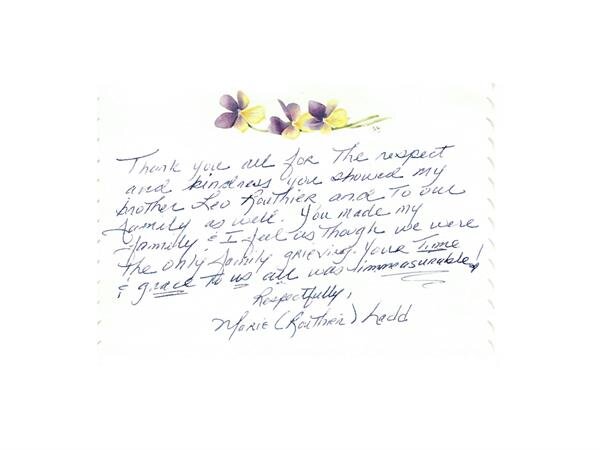 Thank you all for the respect
and kindness you showed my
brother Leo Routhier and to our
family as well. You made my
family & I feel as though we were
the only family grieving. Your Time
& grace to us all was immeasurable!
Respectfully,
Marie (Routhier) Ladd